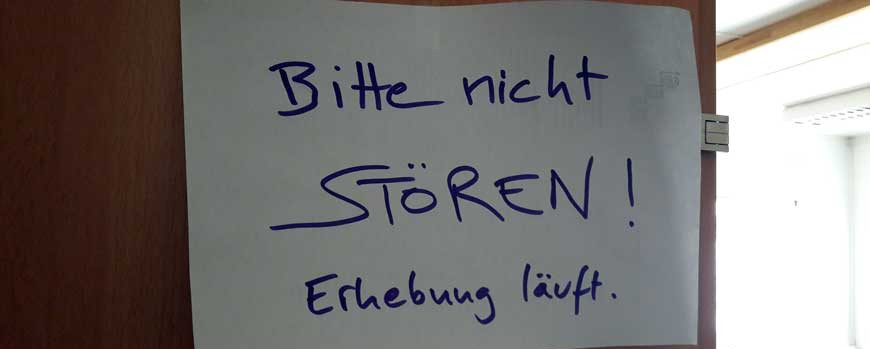 Bitte nicht
STÖREN!
Erhebung läuft.